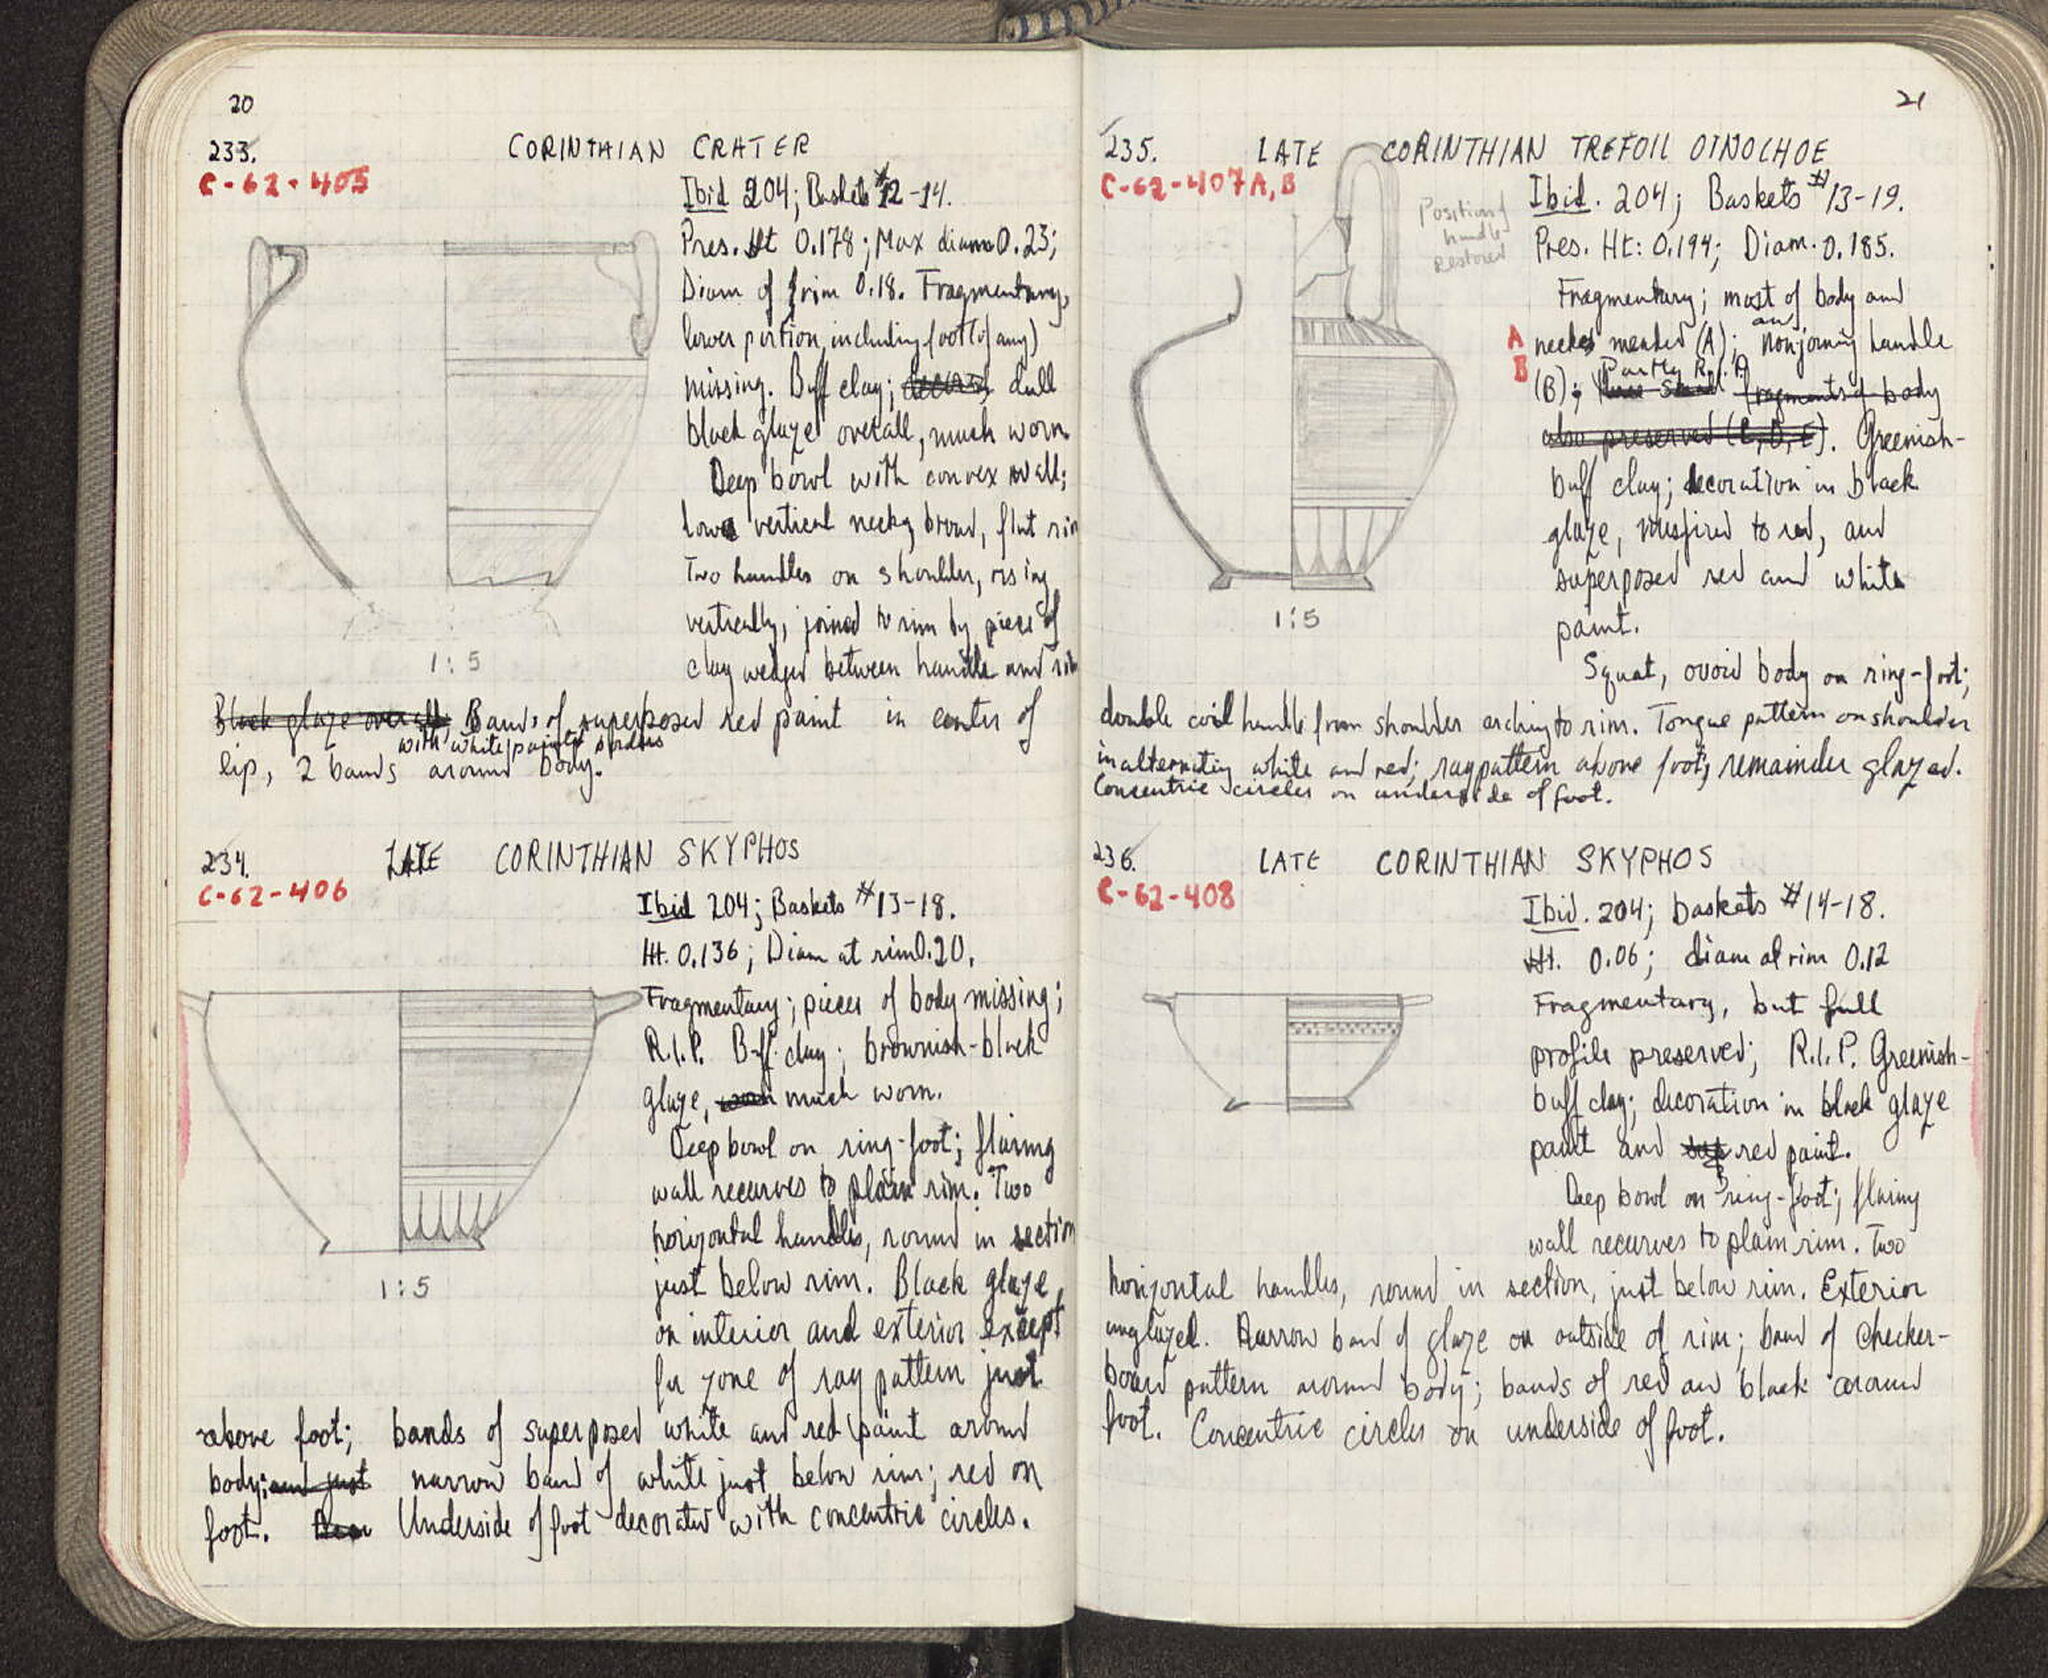 20
233.
CORINTHIAN CRATER
C-62-405
Ibid 204; Baskets #12-14.
Pres. Ht 0.178; Max diam 0.23;
Diam of rim 0.18. Fragmentary,
lower portion, including foot (if any)
missing. Buff clay; decora dull
black glaze overall, much worn
Deep bowl with convex wall;
low vertical neck, broad, flat rim
Two handles on shoulder, rising
vertically, joined to rim by piece of
clay wedged between handle and rim
1:5
Black glaze overall, Bands of superposed red paint in center of
with white paint borders
lip, 2 bands around body.
234.
LATE CORINTHIAN SKYPHOS
C-62-406
Ibid 204; Baskets #13-18.
Ht. 0.136; Diam at rim 0.20.
Fragmentary; pieces of body missing;
R.I.P. Buff clay; brownish-black
glaze, worn much worn.
Deep bowl on ring-foot; flaring
wall recurves to plain rim. Two
horizontal handles, round in section
just below rim. Black glaze
on interior and exterior except
for zone of ray pattern just
1:5
above foot; bands of superposed white and red paint around
body; and just narrow band of white just below rim; red on
foot. Underside of foot decorated with concentric circles.
21
235.
LATE CORINTHIAN TREFOIL OINOCHOE
C-62-407 A, B
Ibid. 204; Baskets #13-19.
Position of
handle
restored
Pres. Ht: 0.194; Diam. 0.185.
Fragmentary; most of body and
an
A neck mended (A); nonjoining handle
Partly R.I.P.
B (B); three small fragments of body
also preserved (C, D, E). Greenish-
buff clay; decoration in black
glaze, misfired to red, and
superposed red and white
paint.
1:5
Squat, ovoid body on ring-foot;
double coil handle from shoulder arching to rim. Tongue pattern on shoulder
in alternating white and red; ray pattern above foot; remainder glazed.
Concentric circles on underside of foot.
236.
LATE CORINTHIAN SKYPHOS
C-62-408
Ibid. 204; baskets #14-18.
Ht. 0.06; diam at rim 0.12
Fragmentary, but full
profile preserved; R.I.P. Greenish-
buff clay; decoration in black glaze
paint and sup red paint.
Deep bowl on ring-foot; flaring
wall recurves to plain rim. Two
horizontal handles, round in section, just below rim. Exterior
unglazed. Narrow band of glaze on outside of rim; band of checker-
board pattern around body; bands of red and black around
foot. Concentric circles on underside of foot.